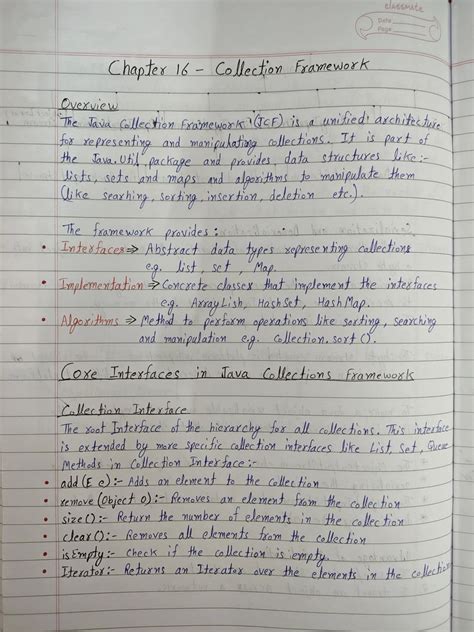 classmate
Date
Page
Chapter 16 - Collection Framework
Overview
The Java Collection Framework (JCF) is a unified architecture
for representing and manipulating collections. It is part of
the Java.Util package and provides data structures like:-
lists, sets and maps and algorithms to manipulate them
(like searhing, sorting, insertion, deletion etc.).
The framework provides:
• Interfaces => Abstract data types representing collections
e.g. list, set, Map.
• Implementation => Concrete classes that implement the interfaces
e.g. ArrayLish, HashSet, HashMap.
• Algorithms => Method to perform operations like sorting, searching
and manipulation e.g. collection.sort().
Core Interfaces in Java Collections Framework
Collection Interface
The root Interface of the hierarchy for all collections. This interface
is extended by more specific collection interfaces like List, Set, Queue
Methods in Collection Interface:-
• add(E e):- Adds an element to the collection
• remove(Object o):- Removes an element from the collection
• size():- Return the number of elements in the collection
• clear():- Removes all elements from the collection
• isEmpty:- check if the collection is empty.
• Iterator:- Returns an Iterator over the elements in the collection